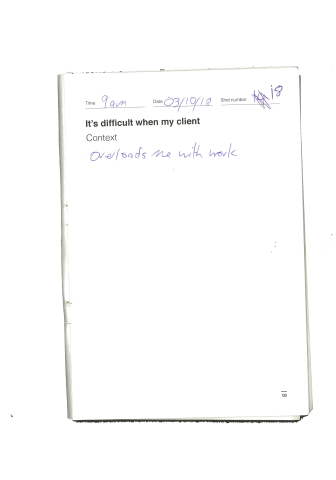 Time 9am Date 03/10/18 Shot number 18
It's difficult when my client
Context
overloads me with work
18